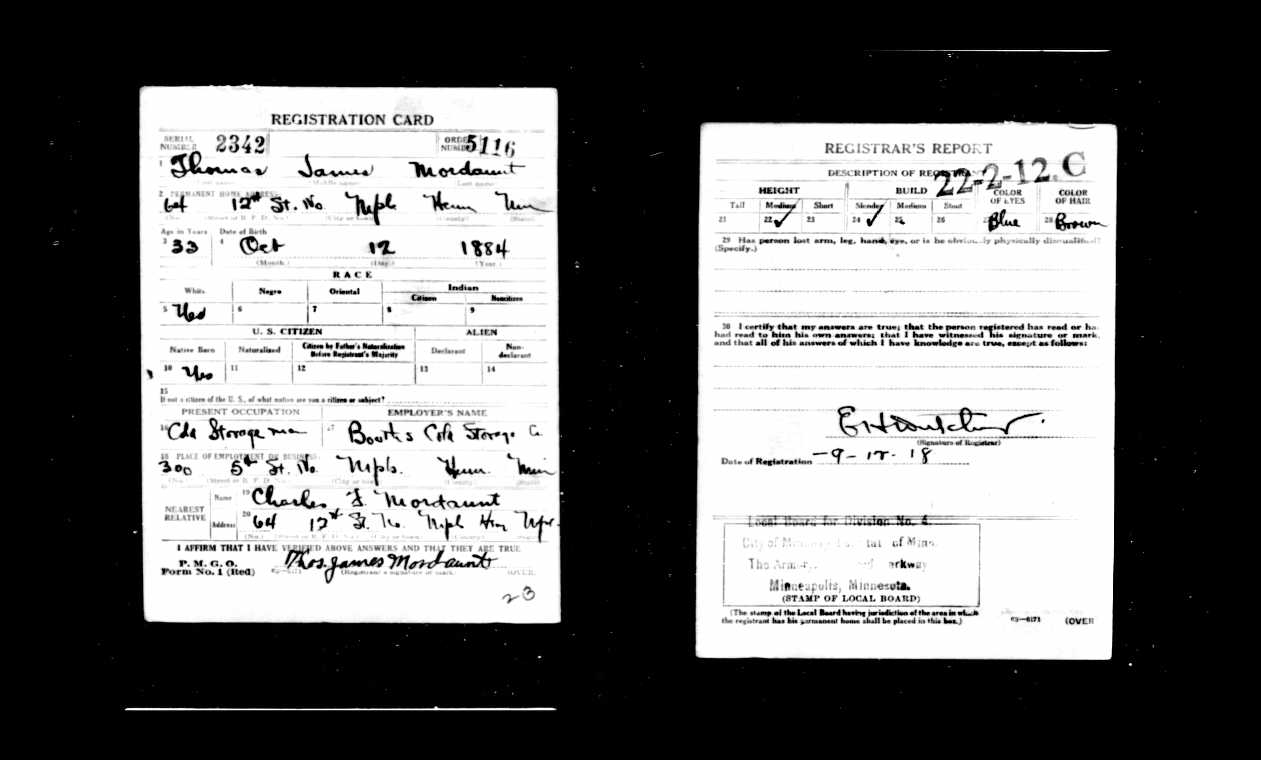 REGISTRATION CARD
SERIAL NUMBER 2342 ORDER NUMBER 5116
1 Thomas James Mordaunt
(First name) (Middle name) Last name
2 PERMANENT HOME ADDRESS:
64 12th St. No. Mpls Henn Min
(No.) (Street or R. F. D. No.) (City or town) (County) (State)
Age in Years Date of Birth
3 33 4 Oct 12 1884
(Month.) (Day.) (Year.)
RACE
White Negro Oriental Indian
Citizen Noncitizen
5 Yes 6 7 8 9
U. S. CITIZEN ALIEN
Native Born Naturalized Citizen by Father's Naturalization Before Registrant's Majority Declarant Non-declarant
10 Yes 11 12 13 14
15
If not a citizen of the U. S., of what nation are you a citizen or subject?
PRESENT OCCUPATION EMPLOYER'S NAME
16 Cold Storage man 17 Booths Cold Storage Co
18 PLACE OF EMPLOYMENT OR BUSINESS:
300 5th St. No. Mpls. Henn. Min
(No.) (Street or R. F. D. No.) (City or town) (County) (State)
NEAREST RELATIVE
Name 19 Charles F. Mordaunt
Address 20 64 12th St. No. Mpls Hen
(No.) (Street or R. F. D. No.) (City or town) (County) (State)
I AFFIRM THAT I HAVE VERIFIED ABOVE ANSWERS AND THAT THEY ARE TRUE
P. M. G. O.
Form No. 1 (Red) Thos. James Mordaunt
(Registrant's signature or mark) (OVER)
23
REGISTRAR'S REPORT
22-2-12. C
DESCRIPTION OF REGISTRANT
HEIGHT BUILD COLOR OF EYES COLOR OF HAIR
Tall Medium Short Slender Medium Stout
21 22 ✓ 23 24 ✓ 25 26 27 Blue 28 Brown
29 Has person lost arm, leg, hand, eye, or is he obviously physically disqualified?
(Specify.)
30 I certify that my answers are true; that the person registered has read or has
had read to him his own answers; that I have witnessed his signature or mark,
and that all of his answers of which I have knowledge are true, except as follows:
(Signature of Registrar)
Date of Registration -9-12-18
Local Board for Division No. 4.
City of Minneapolis, State of Minn.
The Armory, Parkway
Minneapolis, Minnesota.
(STAMP OF LOCAL BOARD)
(The stamp of the Local Board having jurisdiction of the area in which
the registrant has his permanent home shall be placed in this box.)
03-6171 (OVER